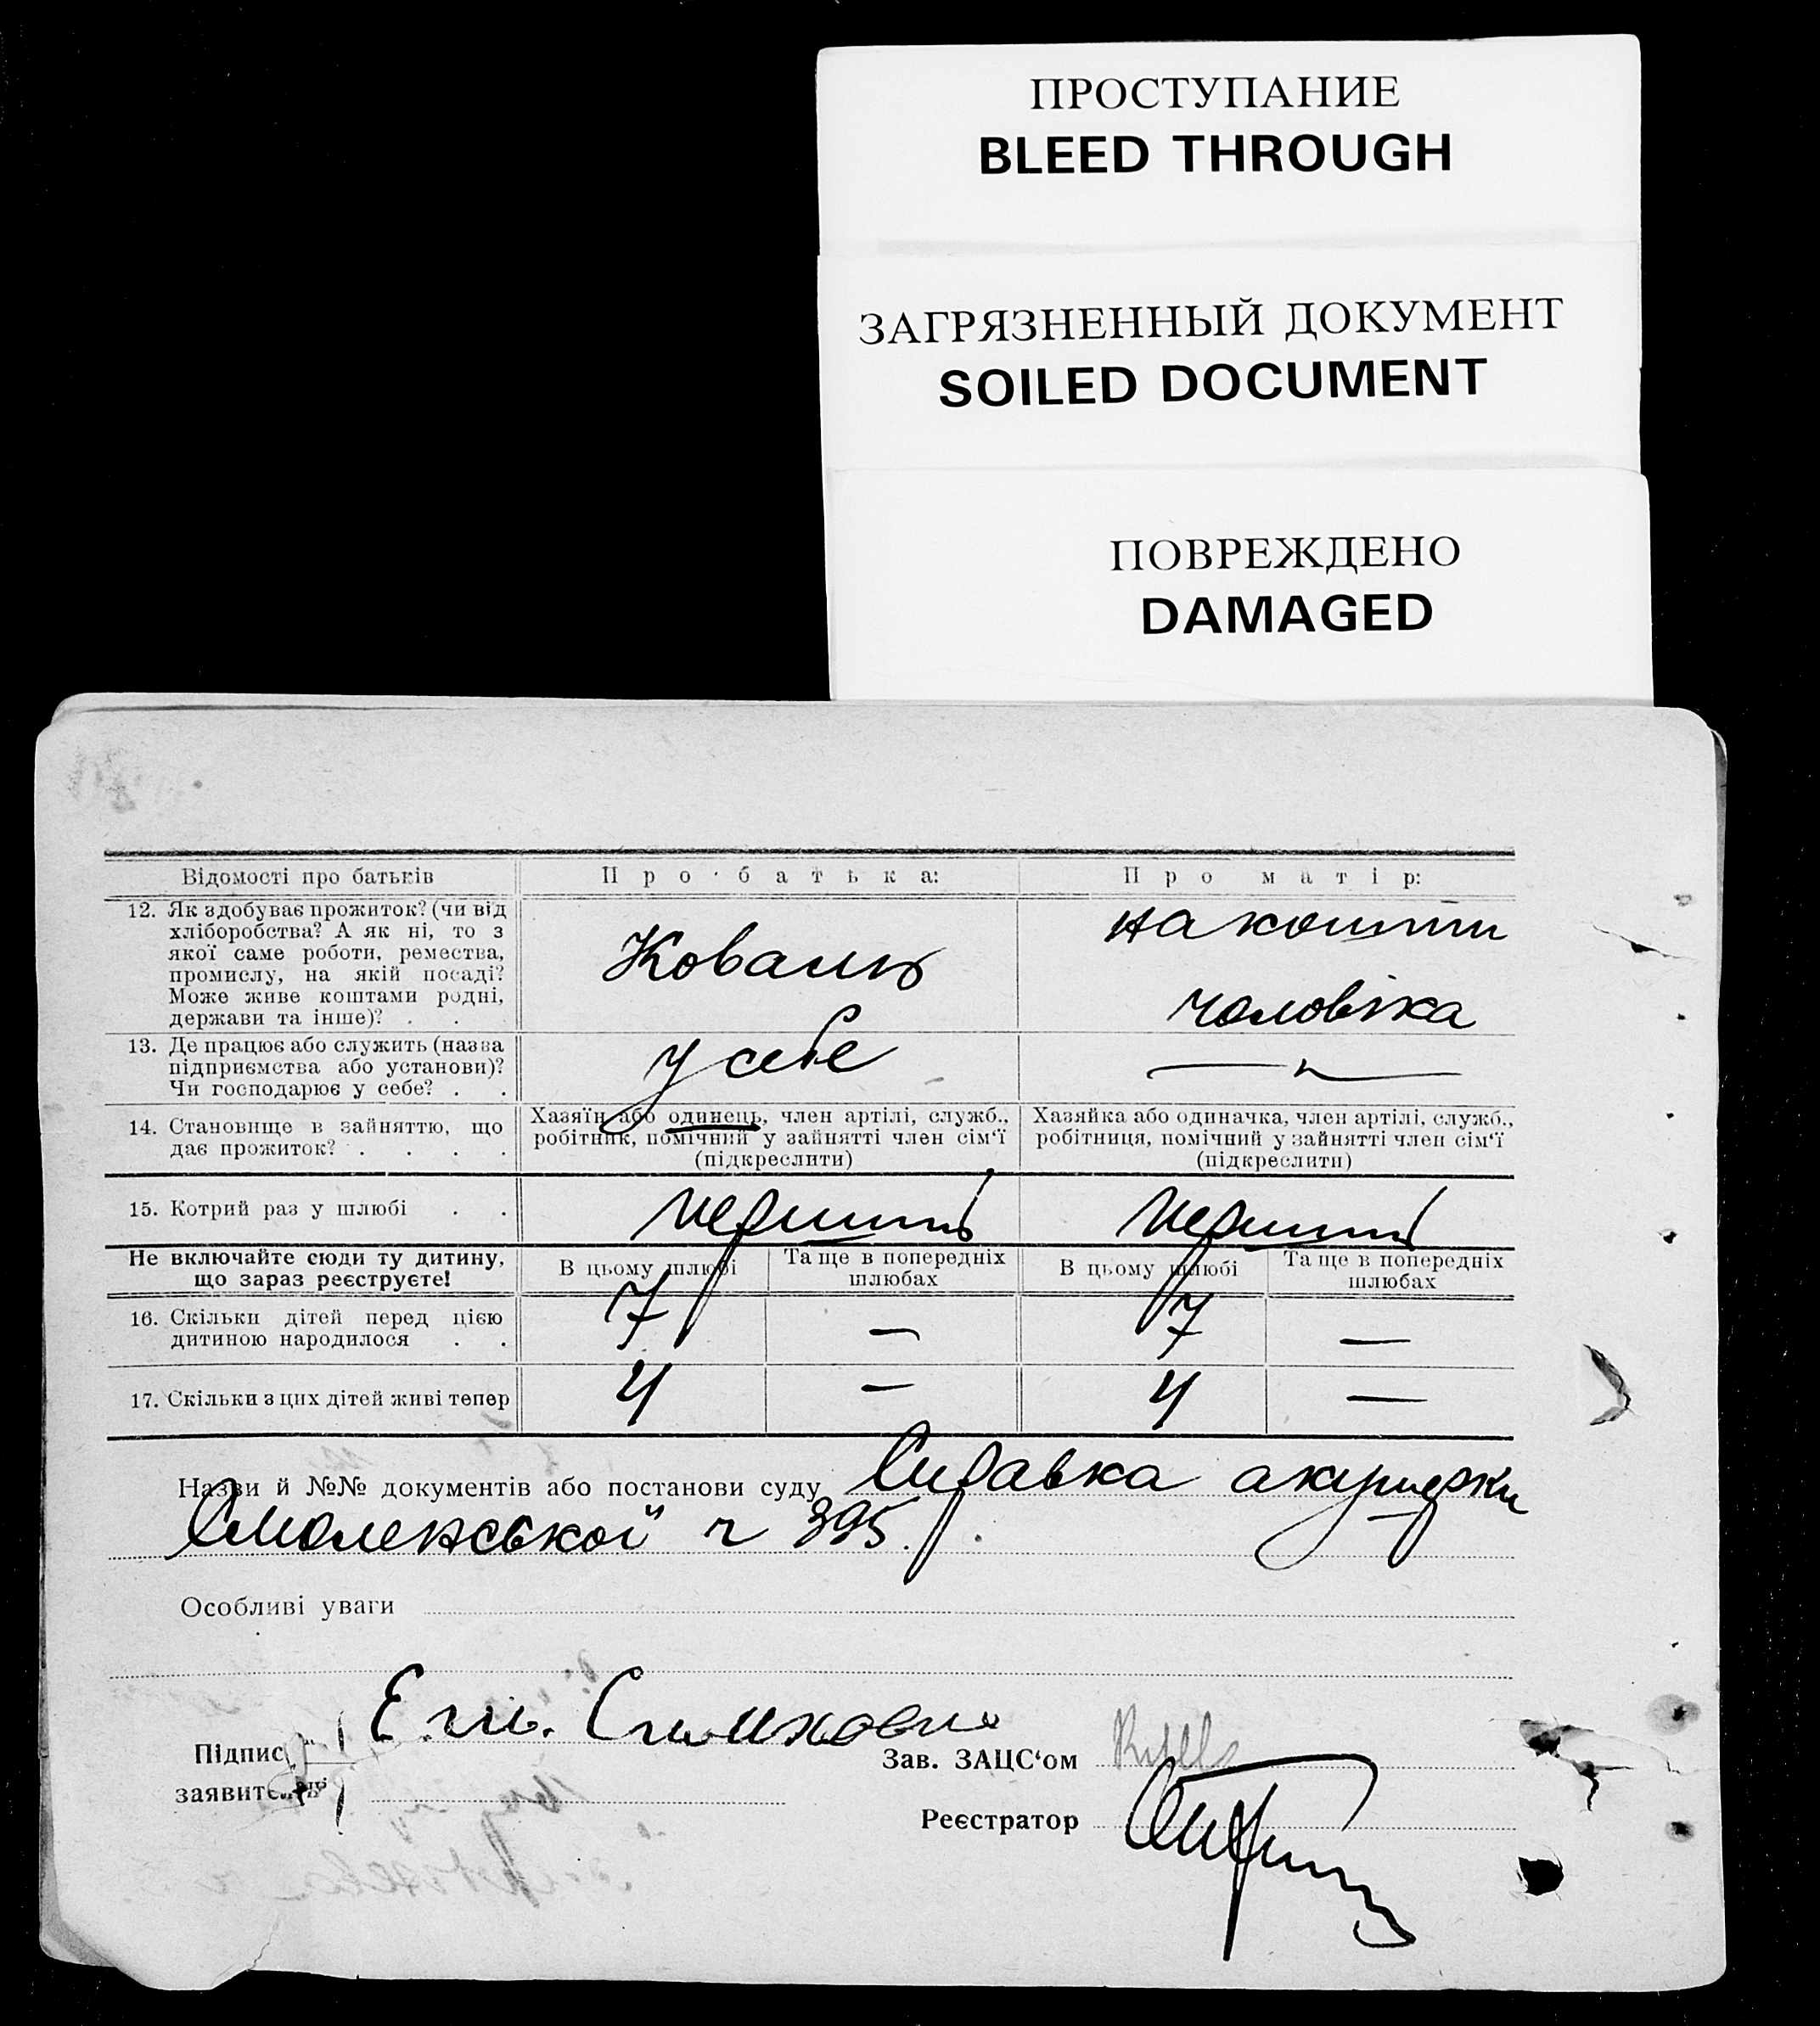 ПРОСТУПАНИЕ
BLEED THROUGH
ЗАГРЯЗНЕННЫЙ ДОКУМЕНТ
SOILED DOCUMENT
ПОВРЕЖДЕНО
DAMAGED
Відомості про батьків
Про батька:
Про матір:
12. Як здобуває прожиток? (чи від
хліборобства? А як ні, то з
якої саме роботи, ремества,
промислу, на якій посаді?
Може живе коштами родні,
держави та інше)? . .
Коваль
на кошти
чоловіка
13. Де працює або служить (назва
підприємства або установи)?
Чи господарює у себе? . .
у себе
— " —
14. Становище в зайняттю, що
дає прожиток? . . . .
Хазяїн або одинець, член артілі, служб.,
робітник, помічний у зайнятті член сім'ї
(підкреслити)
Хазяйка або одиначка, член артілі, служб.,
робітниця, помічний у зайнятті член сім'ї
(підкреслити)
15. Котрий раз у шлюбі . .
перший
перший
Не включайте сюди ту дитину,
що зараз реєструєте!
В цьому шлюбі
Та ще в попередніх
шлюбах
В цьому шлюбі
Та ще в попередніх
шлюбах
16. Скільки дітей перед цією
дитиною народилося . .
7 — 7 —
17. Скільки з цих дітей живі тепер
4 — 4 —
Назви й №№ документів або постанови суду Справка акушерки
Смоленської ч 395.
Особливі уваги
Підпис
заявителів
Зав. ЗАЦС'ом
Реєстратор